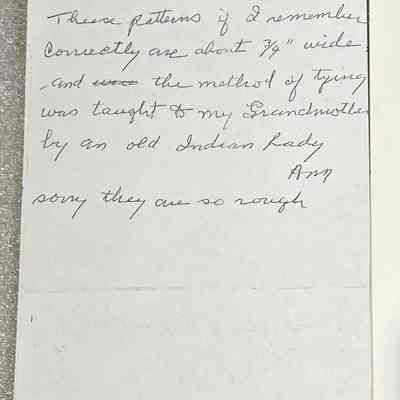 These patterns if I remember
Correctly are about 3/4" wide.
and the method of tying
was taught to my Grandmother
by an old Indian Lady
Ann
sorry they are so rough